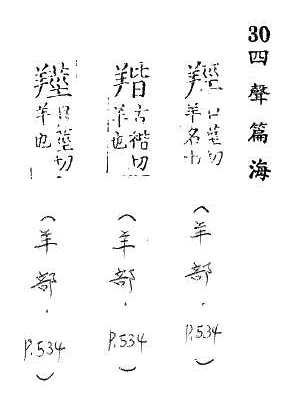 30四聲篇海
羥 口莖切 羊名
(羊部．P.534)
古楷切 羊也
(羊部．P.534)
口莖切 羊也
(羊部．P.534)